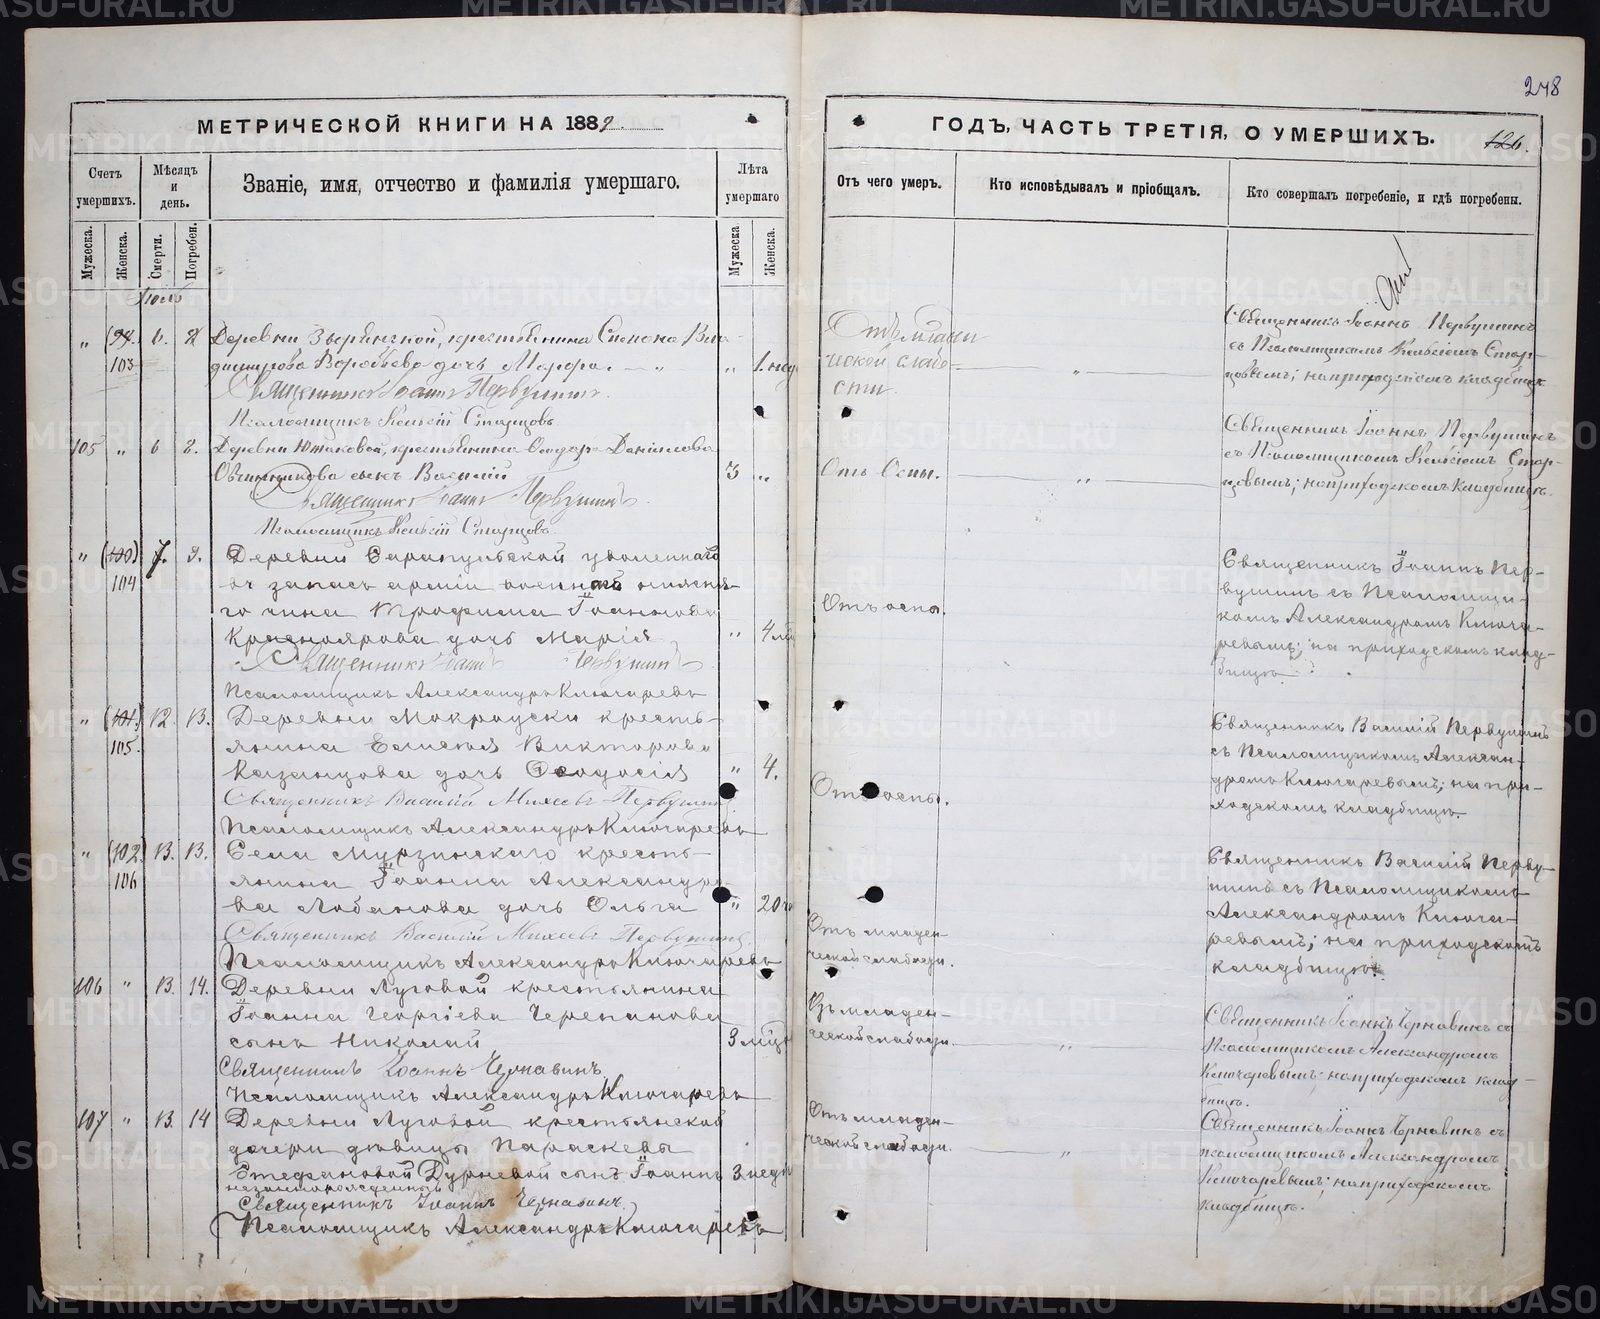 248
МЕТРИЧЕСКОЙ КНИГИ НА 1889
ГОДЪ, ЧАСТЬ ТРЕТІЯ, О УМЕРШИХЪ.
126.
Счетъ умершихъ.
Мѣсяцъ и день.
Званіе, имя, отчество и фамилія умершаго.
Лѣта умершаго
Отъ чего умеръ.
Кто исповѣдывалъ и пріобщалъ.
Кто совершалъ погребеніе, и гдѣ погребены.
Мужеска.
Женска.
Смерти.
Погребен.
Мужеска
Женска.
Іюль
„ (94. 6. 8 Деревни крестьянина Симона Вла-
103 димірова Воробьева дочь Марфа. „ 1. нед
Священникъ Іоаннъ Первушинъ.
Псаломщикъ Старцовъ
Отъ
ческой слабо-
сти.
Священникъ Іоаннъ Первушинъ
съ Псаломщикомъ Стар-
цовымъ; на приходскомъ кладбищѣ
105 „ 6 8. Деревни Южаковой, крестьянина Ѳеодора Даніилова
Овчинникова сынъ Василій 3 „
Священникъ Іоаннъ Первушинъ
Псаломщикъ Старцовъ
Отъ Оспы.
Священникъ Іоаннъ Первушинъ
съ Псаломщикомъ Стар-
цовымъ; на приходскомъ кладбищѣ.
„ (100) 7. 9. Деревни Сарапульской уволеннаго
104 въ запасъ арміи нижня-
го чина Трофима Іоаннова
Красноярова дочь Марія „ 4
Священникъ Іоаннъ Первушинъ
Псаломщикъ Александръ Ключаревъ
Отъ оспы.
Священникъ Іоаннъ Пер-
вушинъ съ Псаломщи-
комъ Александромъ Ключа-
ревымъ; на приходскомъ клад-
бищѣ
„ (101.) 12. 13. Деревни Мокроуски кресть-
105. янина Елисея Викторова
Казанцова дочь Ѳеодосія „ 4.
Священникъ Василій Михеевъ Первушинъ
Псаломщикъ Александръ Ключаревъ
Отъ оспы.
Священникъ Василій Первушинъ
съ Псаломщикомъ Алексан-
дромъ Ключаревымъ; на при-
ходскомъ кладбищѣ.
„ (102) 13. 13. Села Мурзинскаго кресть-
106 янина Іоанна Александро-
ва Лобанова дочь Ольга „ 2
Священникъ Василій Михеевъ Первушинъ
Псаломщикъ Александръ Ключаревъ
Отъ младен-
ческой слабости.
Священникъ Василій Перву-
шинъ съ Псаломщикомъ
Александромъ Ключа-
ревымъ; на приходскомъ
кладбищѣ.
106 „ 13. 14. Деревни Луговой крестьянина
Іоанна Георгіева Черепанова
сынъ Николай 3
Священникъ Іоаннъ Чернавинъ
Псаломщикъ Александръ Ключаревъ
Отъ младен-
ческой слабости.
Священникъ Іоаннъ Чернавинъ съ
Псаломщикомъ Александромъ
Ключаревымъ; на приходскомъ клад-
бищѣ.
107 „ 13. 14 Деревни Луговой крестьянской
дочери дѣвицы Параскевы
Стефановой Дурневой сынъ Іоаннъ 3 недѣ
незаконорожденный
Священникъ Іоаннъ Чернавинъ
Псаломщикъ Александръ Ключаревъ
Отъ младен-
ческой слабости.
Священникъ Іоаннъ Чернавинъ съ
псаломщикомъ Александромъ
Ключаревымъ; на приходскомъ
кладбищѣ.
METRIKI.GASO-URAL.RU